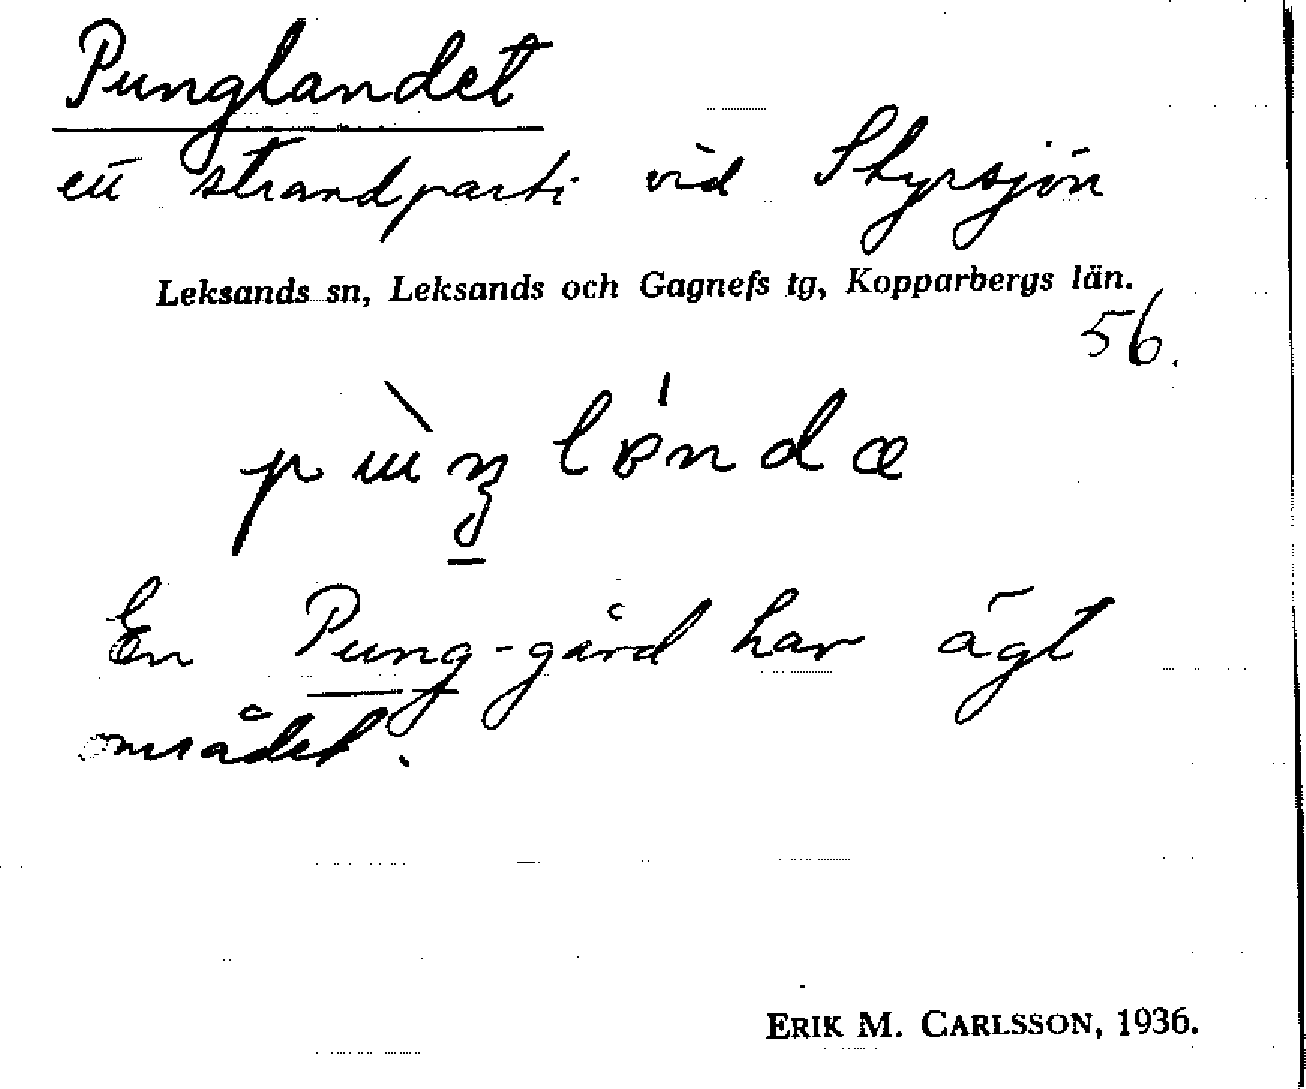 Punglandet
ett strandparti vid Styrsjön
Leksands sn, Leksands och Gagnefs tg, Kopparbergs län.
56.
En Pung-gård har ägt
området.
ERIK M. CARLSSON, 1936.